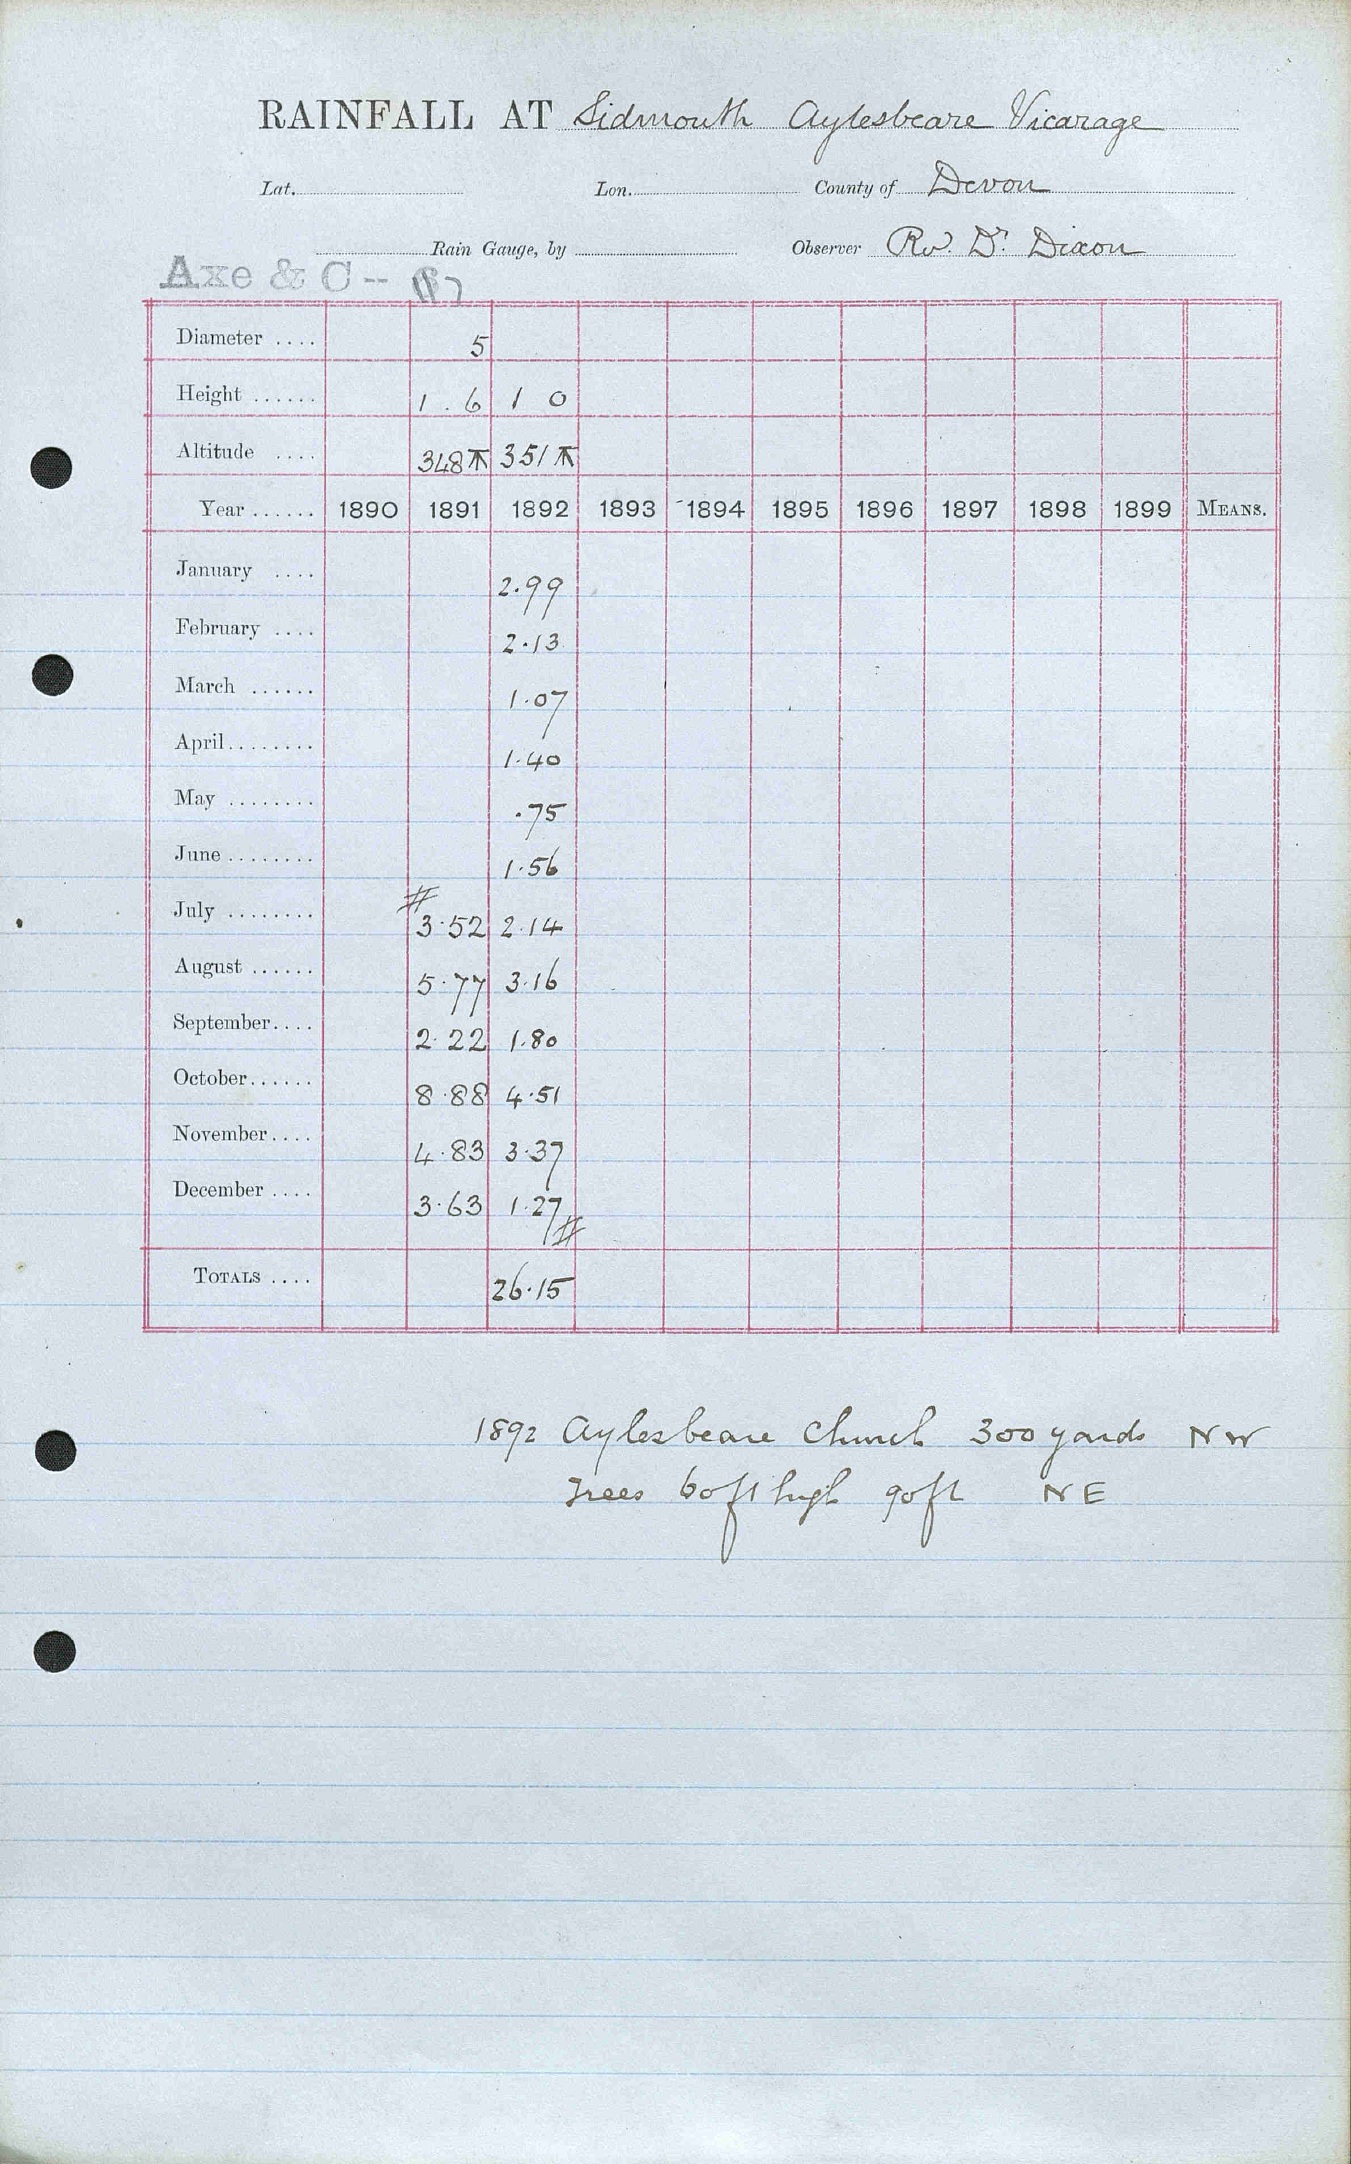 RAINFALL AT Sidmouth Aylesbeare Vicarage
Lat. Lon. County of Devon
Rain Gauge, by Observer Rev. Dr. Dixon
Axe & C--
Diameter .... 5
Height ...... 1 . 6 1 0
Altitude .... 348 351
Year ...... 1890 1891 1892 1893 1894 1895 1896 1897 1898 1899 MEANS.
January .... 2.99
February .... 2.13
March ...... 1.07
April........ 1.40
May ........ .75
June ........ 1.56
#
July ........ 3.52 2.14
August ...... 5.77 3.16
September.... 2.22 1.80
October...... 8.88 4.51
November.... 4.83 3.37
December .... 3.63 1.27
#
TOTALS .... 26.15
1892 Aylesbeare Church 300 yards NW
Trees 60ft high 90ft NE